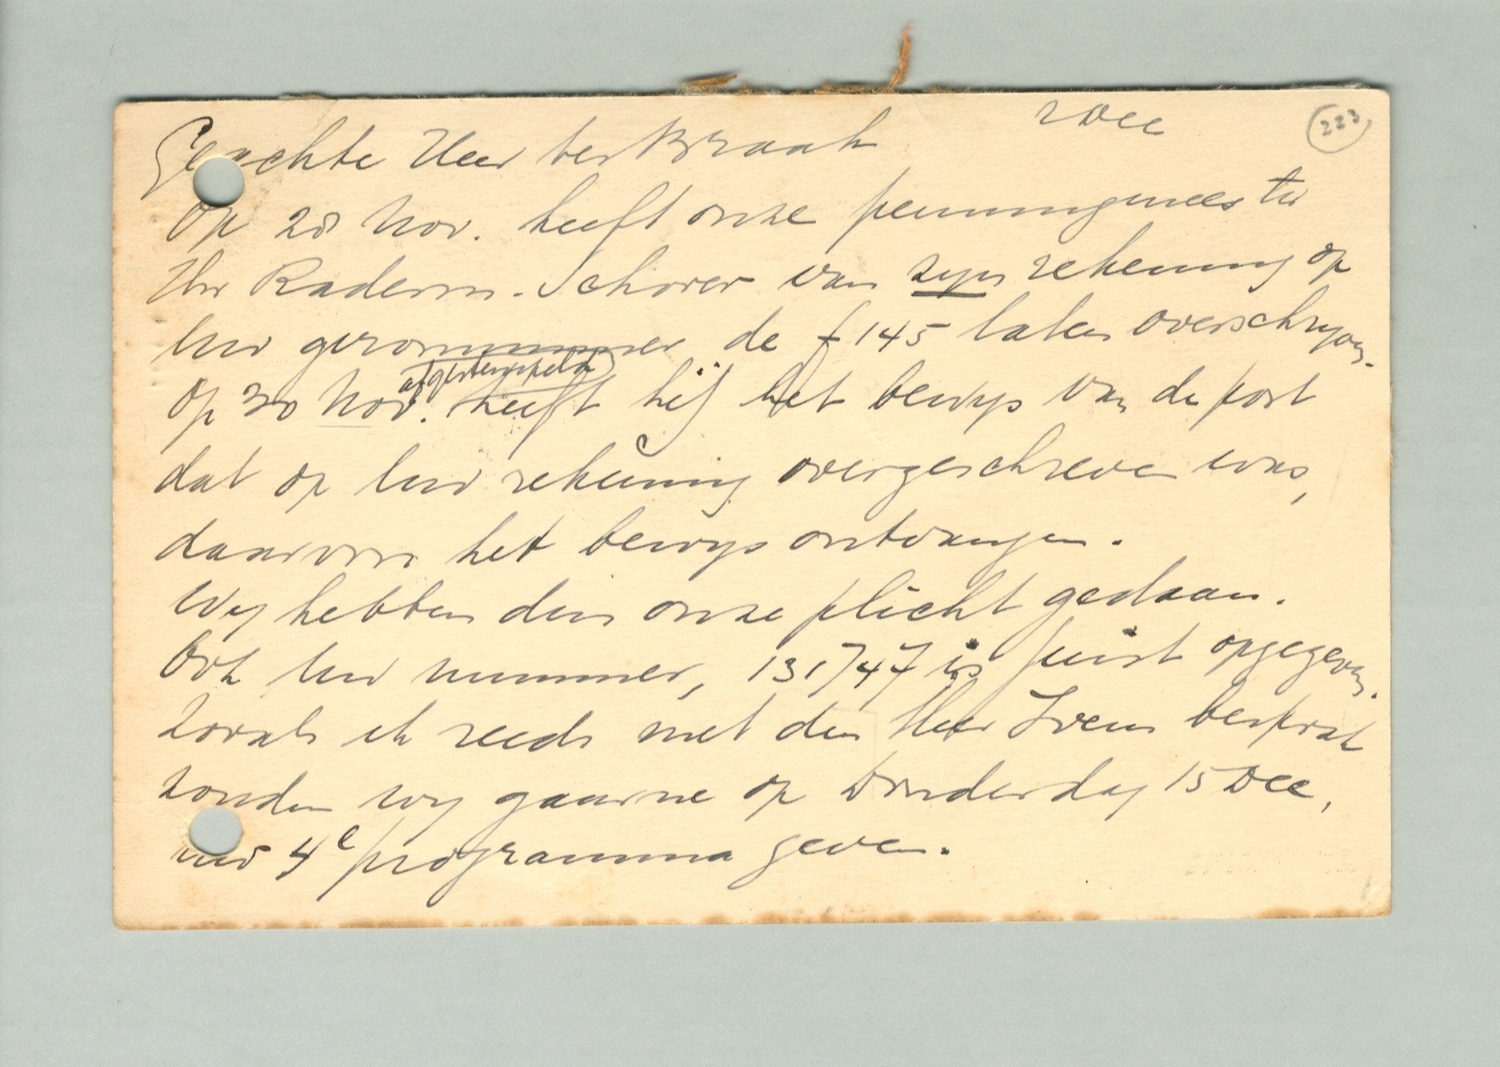 2 Dec
223
Geachte Heer ter Braak
Op 28 Nov. heeft onze penningmeester
Jhr Raderm. Schorer van zyn rekening op
Uw gironummer de f 145 laten overschryven.
afgestempeld
Op 30 Nov. heeft hij het bewys van de post
dat op Uw rekening overgeschreven was,
daarvan het bewys ontvangen.
Wy hebben dus onze plicht gedaan.
Ook Uw nummer, 131747 is juist opgegeven.
Zooals ik reeds met den Heer Ivens besprak
zouden wy gaarne op Donderdag 15 Dec,
Uw 4e programma geven.